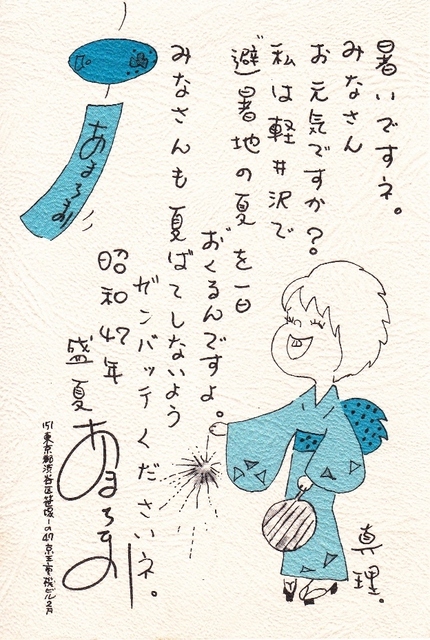 暑いですネ。
みなさん
お元気ですか?
私は軽井沢で
避暑地の夏を一日
おくるんですよ。
みなさんも夏ばてしないよう
ガンバッテくださいネ。
昭和47年
盛夏
あまちまり
151 東京都渋谷区笹塚1の47 京王
あまちまり
真理.